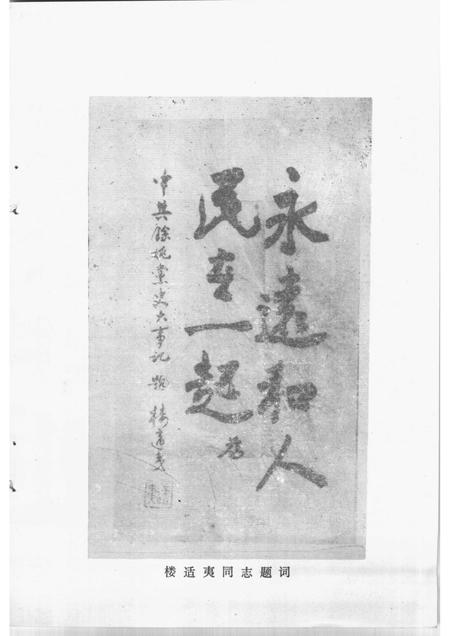 永遠和人
民在一起
为
中共餘姚党史大事记题 楼适夷
楼适夷同志题词